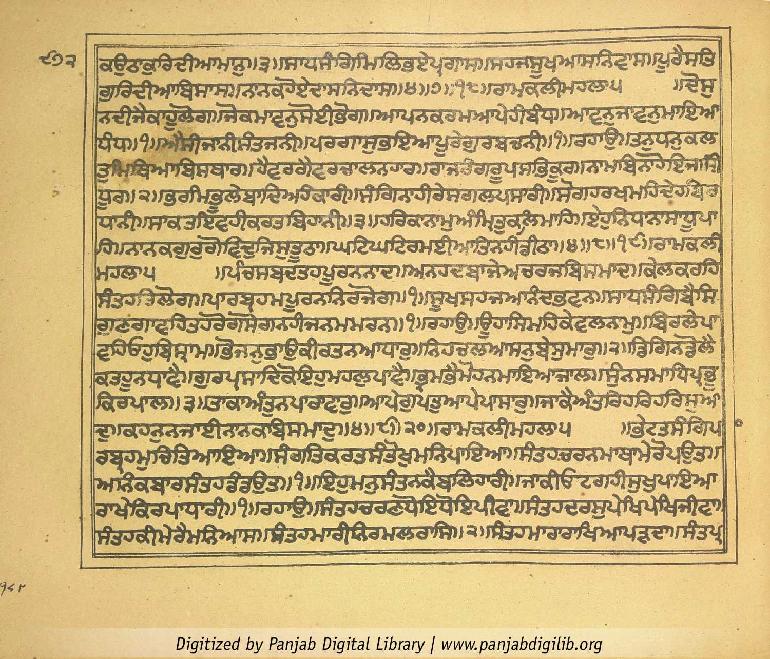 ਕਉਠਾਕੁਰਿਦੀਆਮਾਨੁ॥੩॥ਸਾਧਸੰਗਿਮਿਲਿਭਏਪ੍ਰਗਾਸ॥ਸਹਜਸੂਖਆਸਨਿਵਾਸ॥ਪੂਰੈਸਤਿ
ਗੁਰਿਦੀਆਬਿਸਾਸ॥ਨਾਨਕਹੋਏਦਾਸਨਿਦਾਸ॥੪॥੭॥੧੮॥ਰਾਮਕਲੀਮਹਲਾ੫ ॥ਦੋਸੁ
ਨਦੀਜੈਕਾਹੂਲੋਗ॥ਜੋਕਮਾਵਨੁਸੋਈਭੋਗ॥ਆਪਨਕਰਮਆਪੇਹੀਬੰਧ॥ਆਵਨੁਜਾਵਨੁਮਾਇਆ
ਧੰਧ॥੧॥ਐਸੀਜਾਨੀਸੰਤਜਨੀ॥ਪਰਗਾਸੁਭਇਆਪੂਰੇਗੁਰਬਚਨੀ॥੧॥ਰਹਾਉ॥ਤਨੁਧਨੁਕਲ
ਤੁਮਿਥਿਆਬਿਸਥਾਰ॥ਹੈਵਰਗੈਵਰਚਾਲਨਹਾਰ॥ਰਾਜਰੰਗਰੂਪਸਭਿਕੂਰ॥ਨਾਮਬਿਨਾਹੋਇਜਾਸੀ
ਧੂਰ॥੨॥ਭਰਮਿਭੂਲੇਬਾਦਿਅਹੰਕਾਰੀ॥ਸੰਗਿਨਾਹੀਰੇਸਗਲਪਸਾਰੀ॥ਸੋਗਹਰਖਮਹਿਦੇਹਬਿਰ
ਧਾਨੀ॥ਸਾਕਤਇਵਹੀਕਰਤਬਿਹਾਨੀ॥੩॥ਹਰਿਕਾਨਾਮੁਅੰਮ੍ਰਿਤੁਕਲਿਮਾਹਿ॥ਏਹੁਨਿਧਾਨਾਸਾਧੂਪਾ
ਹਿ॥ਨਾਨਕਗੁਰੁਗੋਵਿਦੁਜਿਸੁਤੂਠਾ॥ਘਟਿਘਟਿਰਮਈਆਤਿਨਹੀਡੀਠਾ॥੪॥੮॥੧੯॥ਰਾਮਕਲੀ
ਮਹਲਾ੫ ॥ਪੰਚਸਬਦਤਹਪੂਰਨਨਾਦ॥ਅਨਹਦਬਾਜੇਅਚਰਜਬਿਸਮਾਦ॥ਕੇਲਕਰਹਿ
ਸੰਤਹਰਿਲੋਗ॥ਪਾਰਬ੍ਰਹਮਪੂਰਨਨਿਰਜੋਗ॥੧॥ਸੂਖਸਹਜਆਨੰਦਭਵਨ॥ਸਾਧਸੰਗਿਬੈਸਿ
ਗੁਣਗਾਵਹਿਤਹਰੋਗਸੋਗਨਹੀਜਨਮਮਰਨ॥੧॥ਰਹਾਉ॥ਊਹਾਸਿਮਰਹਿਕੇਵਲਨਾਮੁ॥ਬਿਰਲੇਪਾ
ਵਹਿਓਹੁਬਿਸ੍ਰਾਮੁ॥ਭੋਜਨੁਭਾਉਕੀਰਤਨਆਧਾਰੁ॥ਨਿਹਚਲਆਸਨੁਬੇਸੁਮਾਰੁ॥੨॥ਡਿਗਿਨਡੋਲੈ
ਕਤਹੂਨਧਾਵੈ॥ਗੁਰਪ੍ਰਸਾਦਿਕੋਇਹੁਮਹਲੁਪਾਵੈ॥ਭ੍ਰਮਭੈਮੋਹਨਮਾਇਆਜਾਲ॥ਸੁੰਨਸਮਾਧਿਪ੍ਰਭੂ
ਕਿਰਪਾਲ॥੩॥ਤਾਕਾਅੰਤੁਨਪਾਰਾਵਾਰੁ॥ਆਪੇਗੁਪਤੁਆਪੇਪਾਸਾਰੁ॥ਜਾਕੈਅੰਤਰਿਹਰਿਹਰਿਸੁਆ
ਦੁ॥ਕਹਨੁਨਜਾਈਨਾਨਕਬਿਸਮਾਦੁ॥੪॥੯॥੨੦॥ਰਾਮਕਲੀਮਹਲਾ੫ ॥ਭੇਟਤਸੰਗਿਪਾ
ਰਬ੍ਰਹਮੁਚਿਤਿਆਇਆ॥ਸੰਗਤਿਕਰਤਸੰਤੋਖੁਮਨਿਪਾਇਆ॥ਸੰਤਹਚਰਨਮਾਥਾਮੇਰੋਪਉਤ॥
ਅਨਿਕਬਾਰਸੰਤਹਡੰਡਉਤ॥੧॥ਇਹੁਮਨੁਸੰਤਨਕੈਬਲਿਹਾਰੀ॥ਜਾਕੀਓਟਗਹੀਸੁਖੁਪਾਇਆ
ਰਾਖੇਕਿਰਪਾਧਾਰੀ॥੧॥ਰਹਾਉ॥ਸੰਤਹਚਰਣਧੋਇਧੋਇਪੀਵਾ॥ਸੰਤਹਦਰਸੁਪੇਖਿਪੇਖਿਜੀਵਾ॥
ਸੰਤਹਕੀਮੇਰੈਮਨਿਆਸ॥ਸੰਤਹਮਾਰੀਨਿਰਮਲਰਾਸਿ॥੨॥ਸੰਤਹਮਾਰਾਰਾਖਿਆਪੜਦਾ॥ਸੰਤਪ੍ਰ
Digitized by Panjab Digital Library | www.panjabdigilib.org